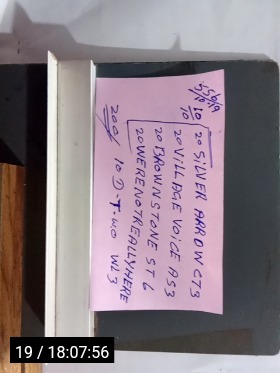 20 SILVER ARROW CT3
20 VILLAGE VOICE AS3
20 BROWNSTONE ST 6
20 WERENOTREALLYHERE WL3
10 D-T-WO
200/
10
10
19 / 18:07:56